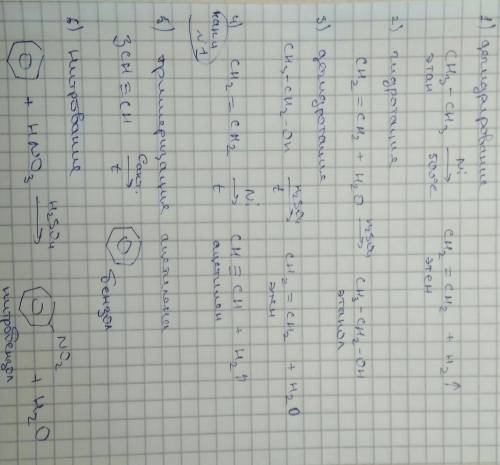 1) дегидрирование
CH3-CH3 Ni → 500°C CH2=CH2 + H2↑
этан этен
2) гидротация
CH2=CH2 + H2O H2SO4 → CH3-CH2-OH
этанол
3) дегидротация
CH3-CH2-OH H2SO4 → t CH2=CH2 + H2O
этен
4) CH2=CH2 Ni → t CH≡CH + H2↑
ацетилен
как и №1
5) тримеризация ацетилена
3CH≡CH Cакт. → t
бензол
6) нитрование
+ HNO3 H2SO4 → NO2 + H2O
нитробензол